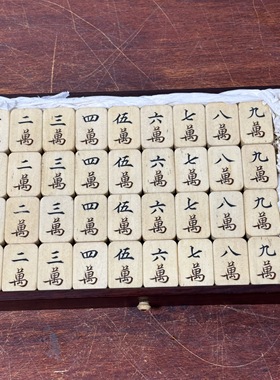 二 三 四 伍 六 七 八 九
萬 萬 萬 萬 萬 萬 萬 萬
二 三 四 伍 六 七 八 九
萬 萬 萬 萬 萬 萬 萬 萬
二 三 四 伍 六 七 八 九
萬 萬 萬 萬 萬 萬 萬 萬
二 三 四 伍 六 七 八 九
萬 萬 萬 萬 萬 萬 萬 萬